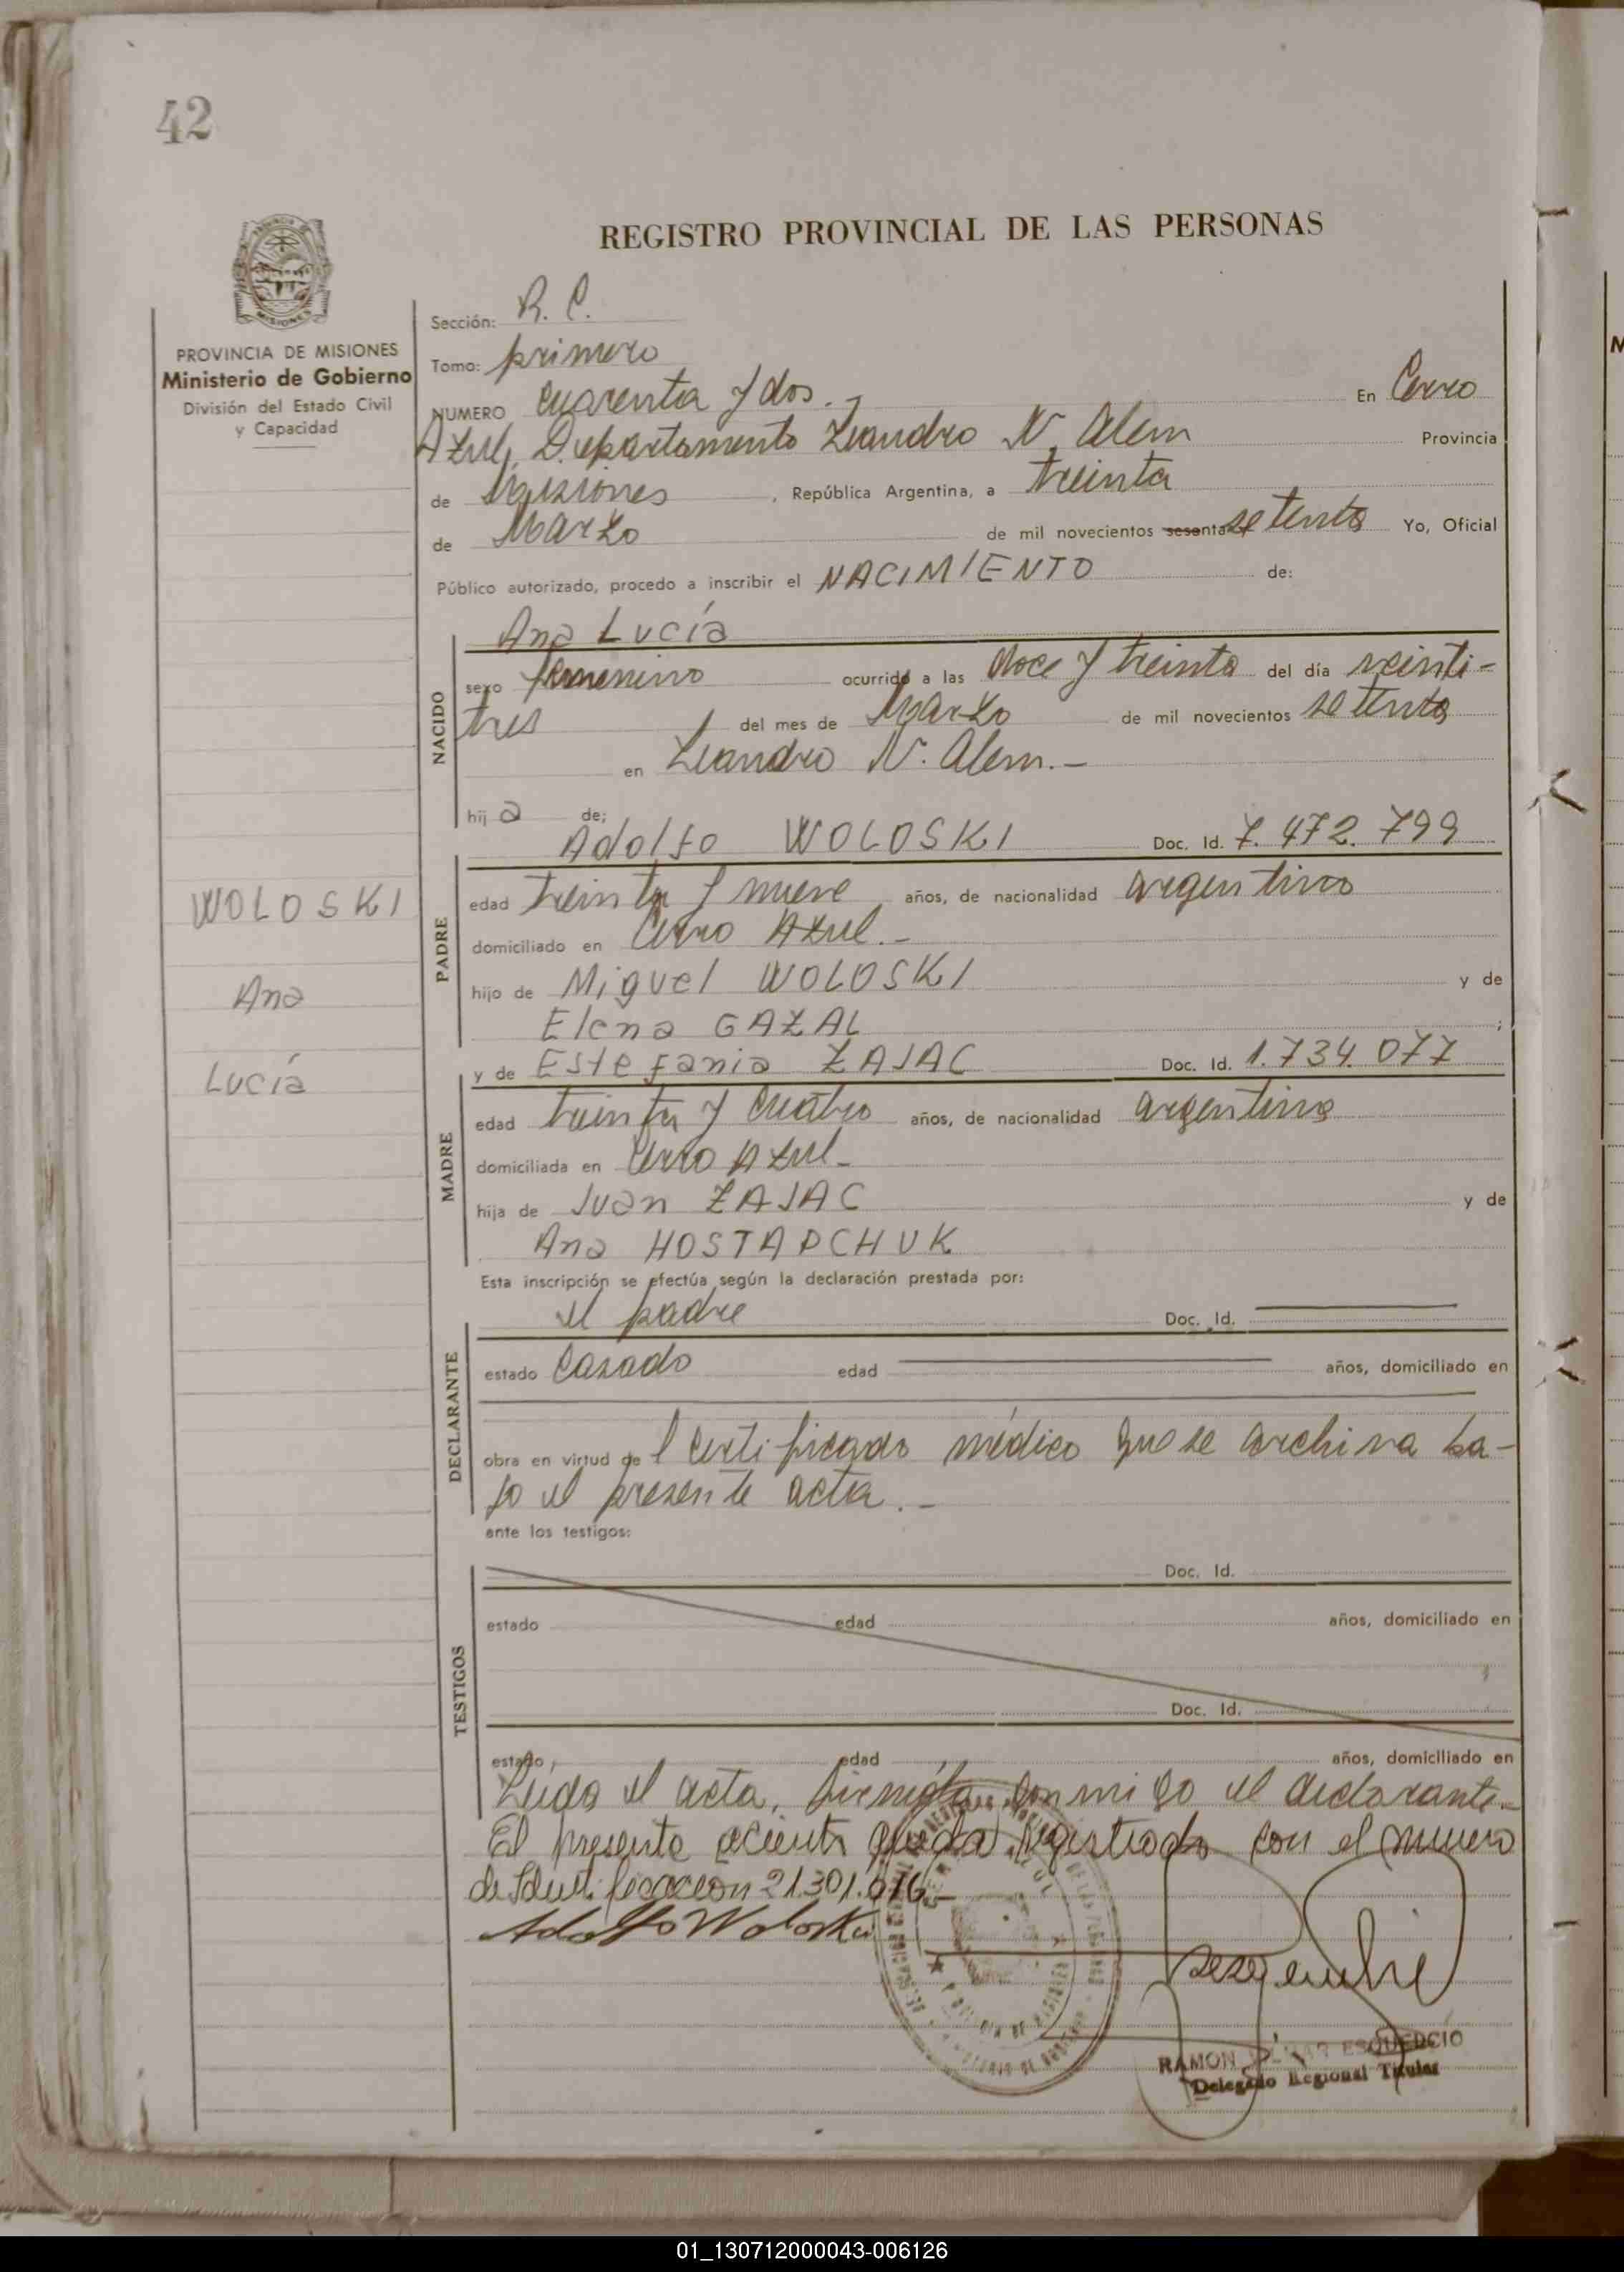 42
REGISTRO PROVINCIAL DE LAS PERSONAS
PROVINCIA DE MISIONES
Ministerio de Gobierno
División del Estado Civil
y Capacidad
Sección: R. C.
Tomo: primero
NUMERO cuarenta y dos.- En Cerro
Azul, Departamento Leandro N. Alem Provincia
de Misiones, República Argentina, a treinta
de Marzo de mil novecientos sesenta setenta Yo, Oficial
Público autorizado, procedo a inscribir el NACIMIENTO de:
Ana Lucía
NACIDO
sexo femenino ocurrido a las doce y treinta del día veinti-
tres del mes de Marzo de mil novecientos setenta
en Leandro N. Alem.-
hij a de;
Adolfo WOLOSKI Doc. Id. 7.472.799
PADRE
edad treinta y nueve años, de nacionalidad argentino
domiciliado en Cerro Azul.-
hijo de Miguel WOLOSKI y de
Elena GAZAL ;
WOLOSKI
Ana
Lucía
y de Estefania ZAJAC Doc. Id. 1.734.077
MADRE
edad treinta y cuatro años, de nacionalidad argentina
domiciliada en Cerro Azul-
hija de Juan ZAJAC y de
Ana HOSTAPCHUK
Esta inscripción se efectúa según la declaración prestada por:
el padre Doc. Id.
DECLARANTE
estado Casado edad años, domiciliado en
obra en virtud de l certificado médico que se archiva ba-
jo el presente acta.-
ante los testigos:
Doc. Id.
TESTIGOS
estado edad años, domiciliado en
Doc. Id.
estado edad años, domiciliado en
Leida el acta, firmóla conmigo el declarante.-
El presente queda registrado con el numero
de Identificacion 21.301.016.-
Adolfo Woloski
RAMON ESQUERCIO
Delegado Regional Titular
01_130712000043-006126